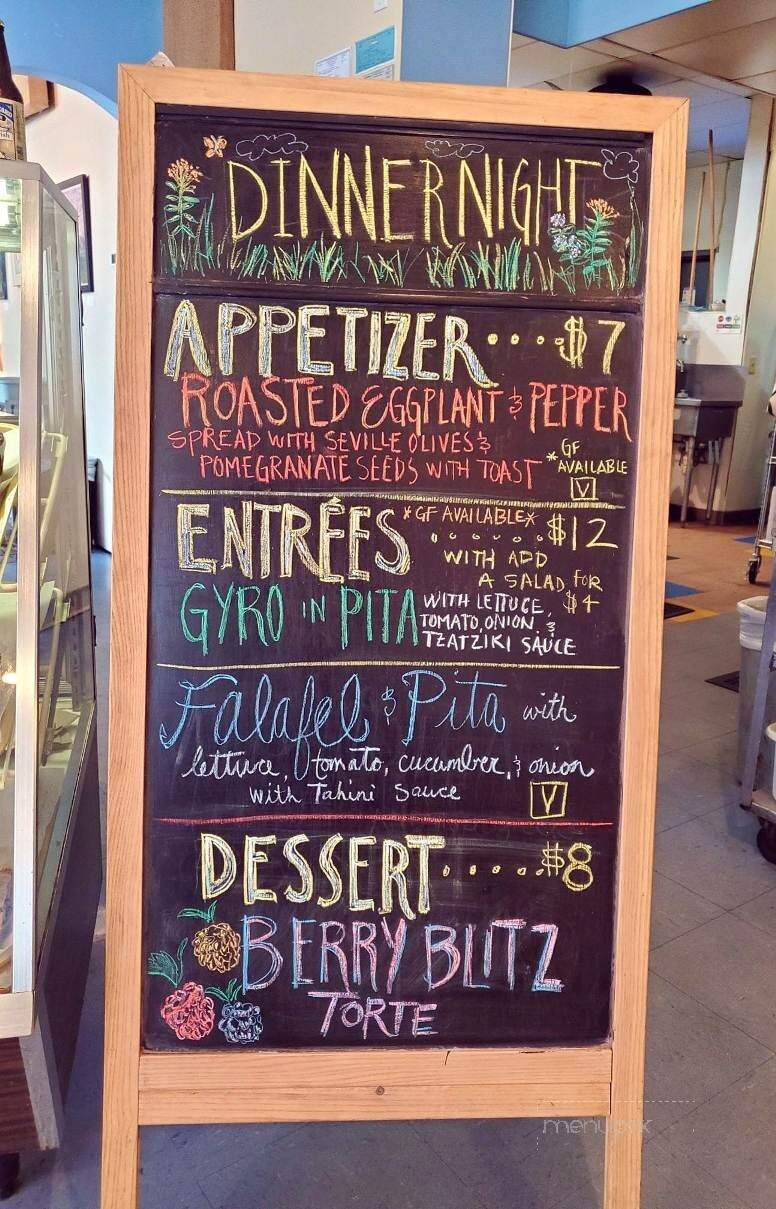 DINNER NIGHT
APPETIZER....$7
ROASTED EGGPLANT & PEPPER
SPREAD WITH SEVILLE OLIVES &
POMEGRANATE SEEDS WITH TOAST
* GF
AVAILABLE
V
ENTRÉES
*GF AVAILABLE*
......$12
WITH ADD
A SALAD FOR
$4
GYRO IN PITA
WITH LETTUCE,
TOMATO, ONION, &
TZATZIKI SAUCE
Falafel & Pita with
lettuce, tomato, cucumber, & onion
with Tahini Sauce
V
DESSERT.....$8
BERRY BLITZ
TORTE